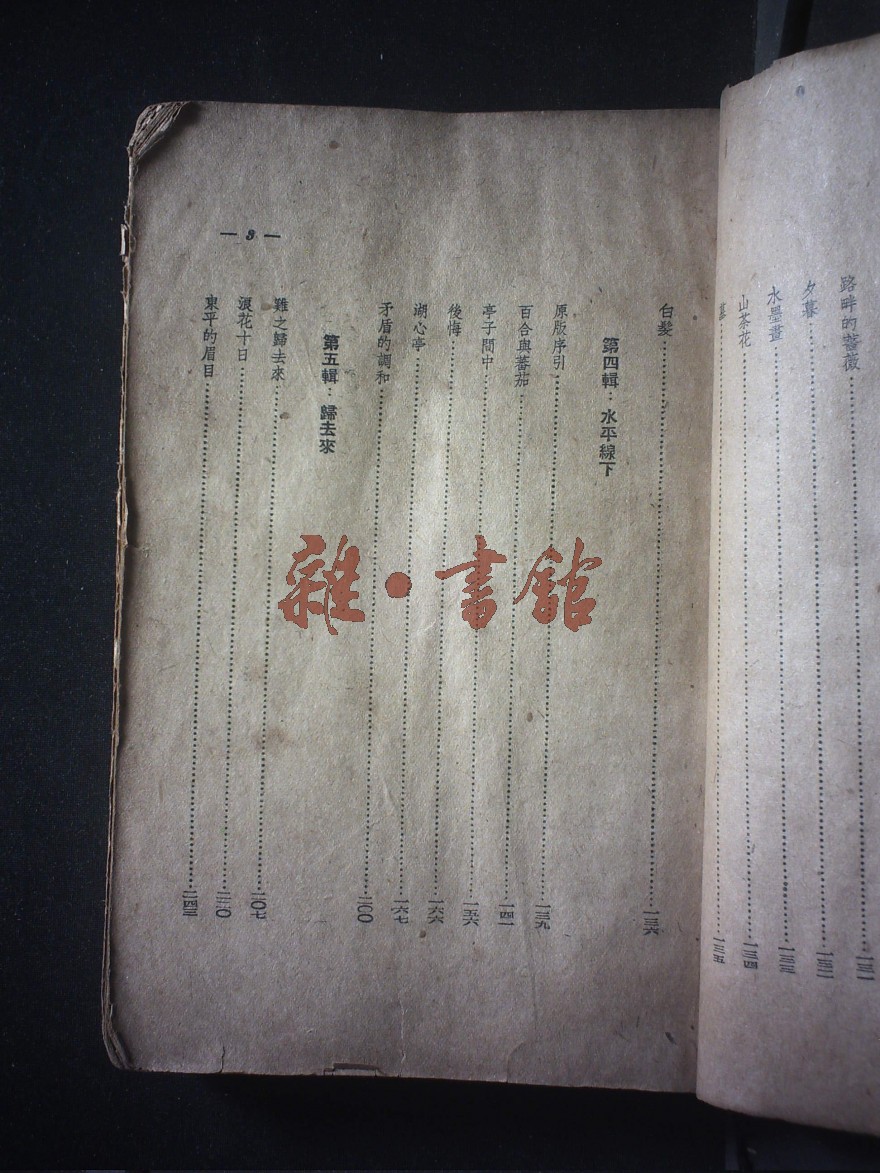 路畔的薔薇……一三一
夕暮……一三二
水墨畫……一三三
山茶花……一三四
墓……一三五
— 3 —
白髮……一三六
第四輯：水平線下
原版序引……一三九
百合與蕃茄……一四一
亭子間中……一五六
後悔……一六六
湖心亭……一六七
矛盾的調和……二〇〇
第五輯：歸去來
雞之歸去來……二〇七
浪花十日……二二〇
東平的眉目……二四三
雜·書館